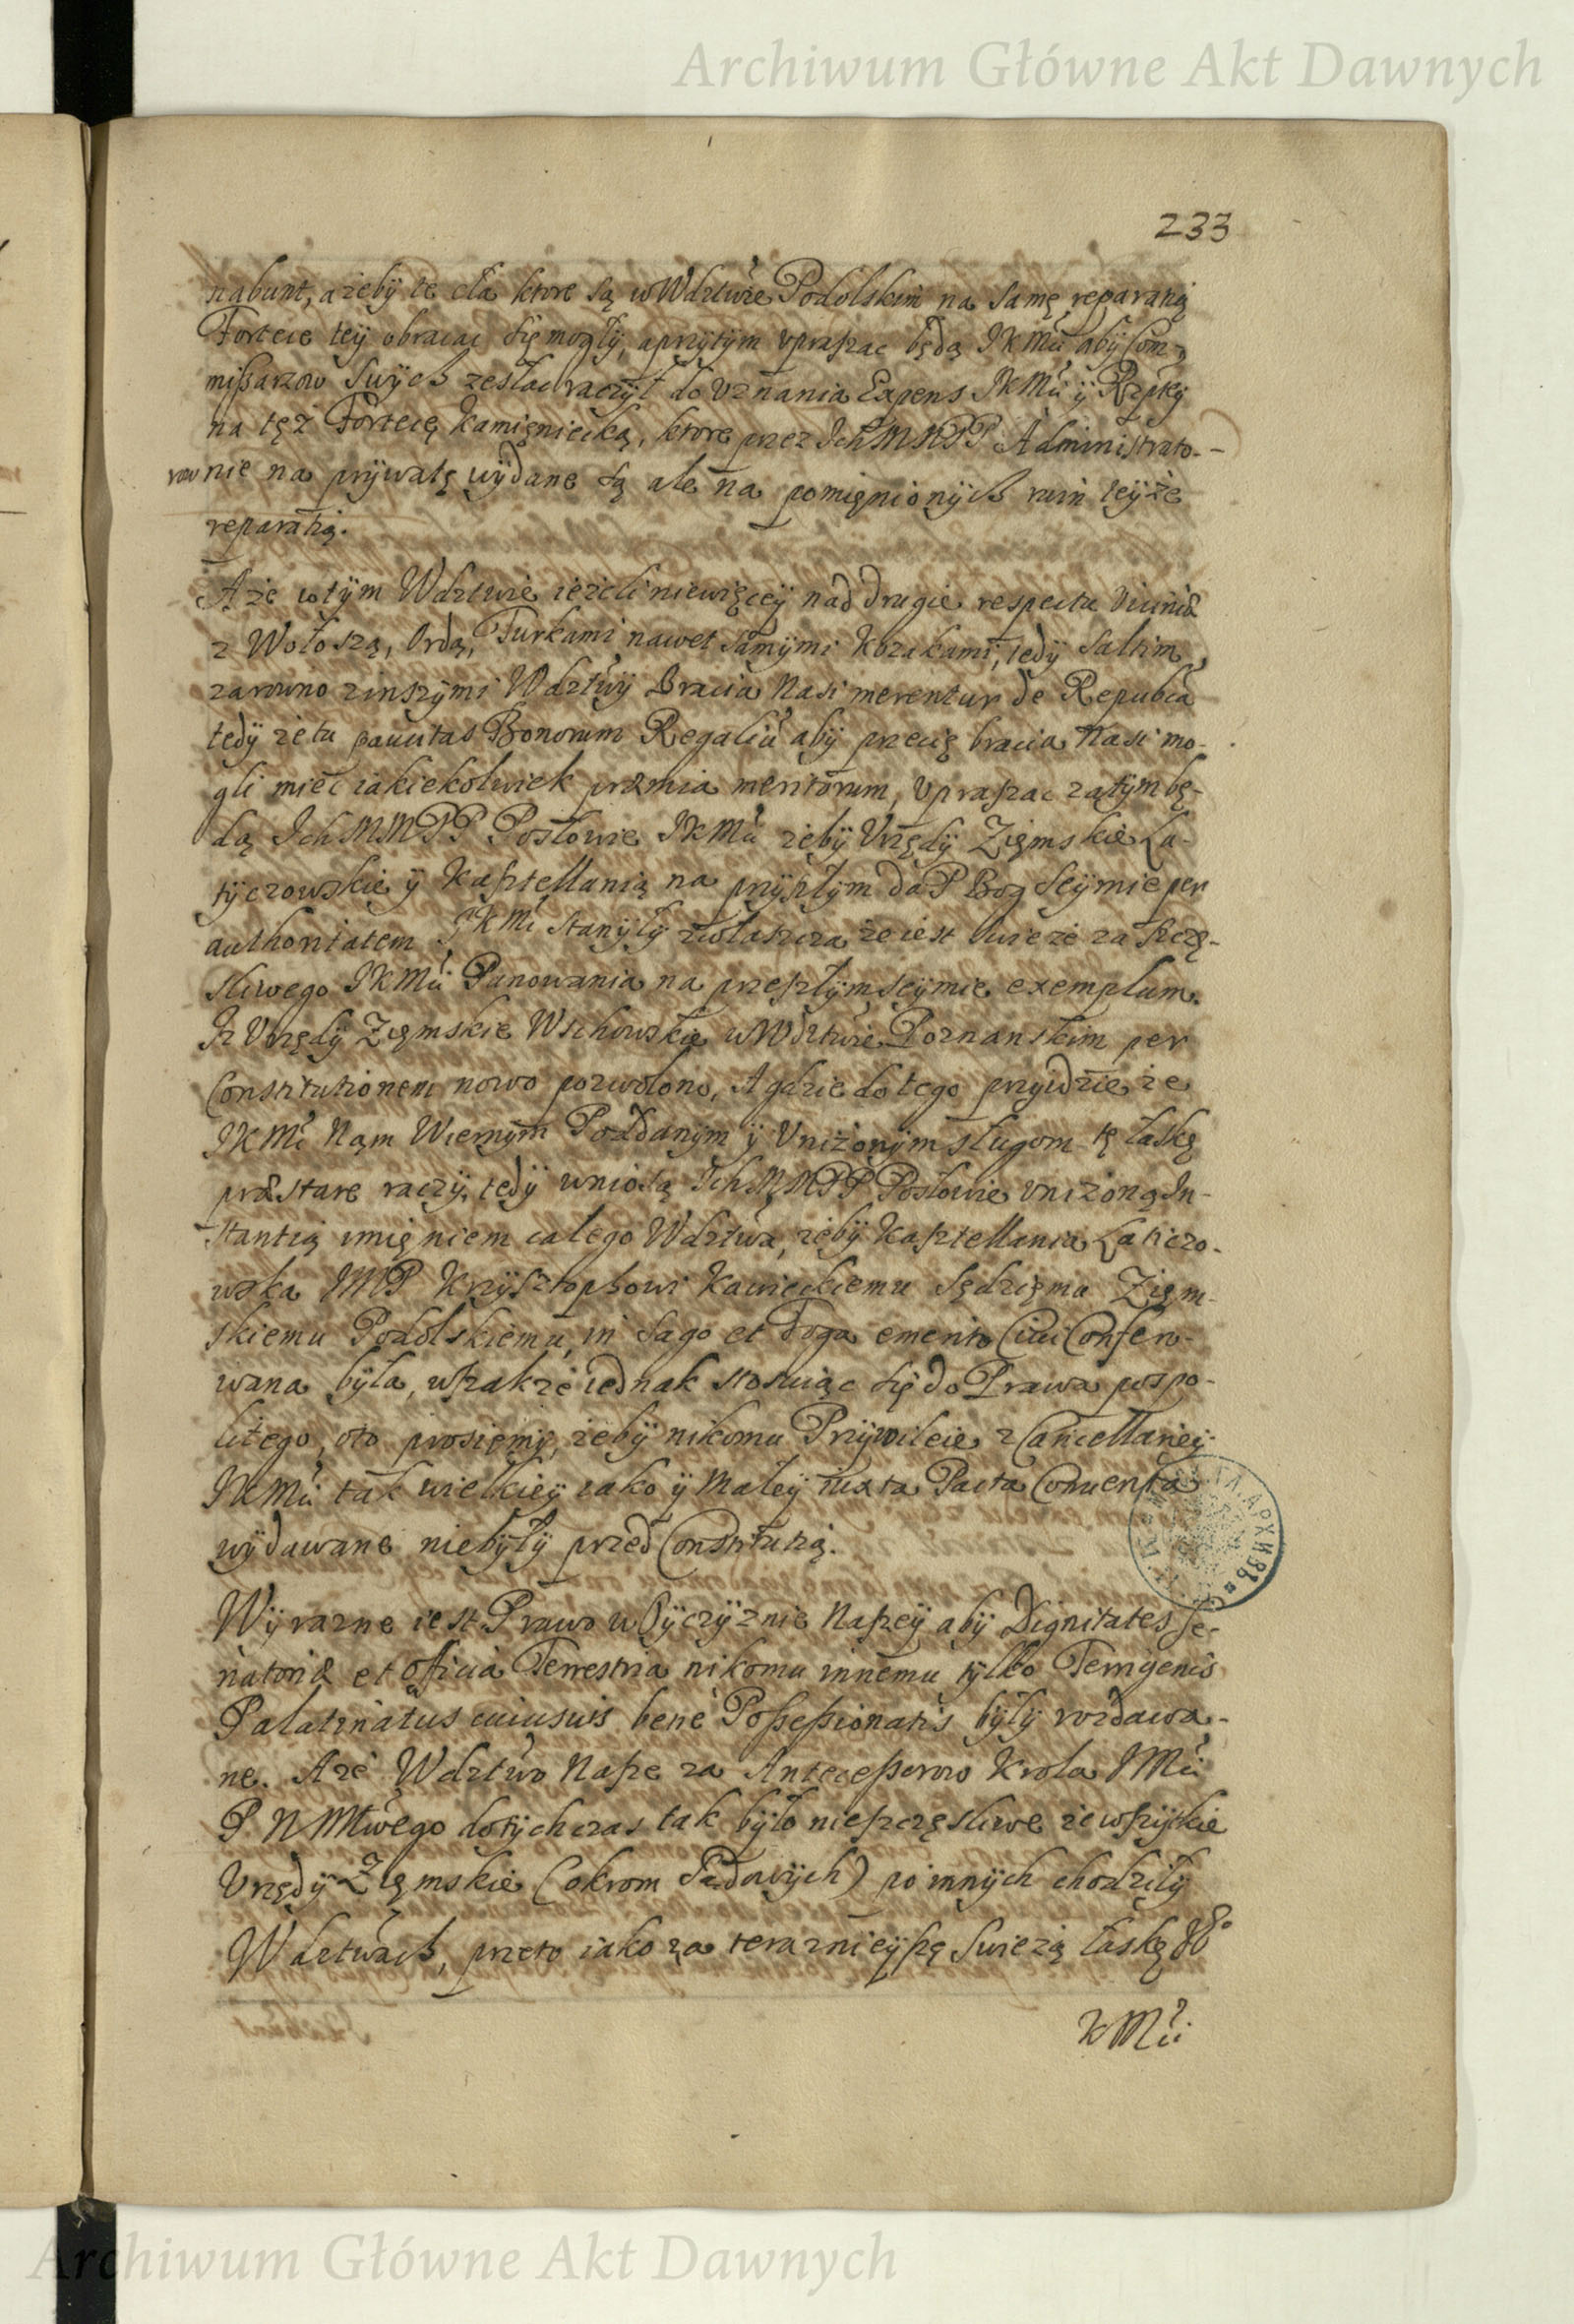 Archiwum Główne Akt Dawnych
233
nabunt, a zeby te cła ktore są w Wdztwie Podolskim na samę reparatią
Fortece teÿ obracac się mogłÿ, aprzÿtÿm vpraszac będą JKMci abÿ Com-
missarzow Swÿch zesłac raczÿł do vznania Expens JKMci ÿ Rzptteÿ
na tęż Fortecę Kamięniecką, ktore przez Ich MMPP Administrato-
row nie na prÿwatę wÿdane są ale na pomięnionÿch ruin teÿże
reparatią.
A ze wtÿm Wdztwie iezeli niewięceÿ nad drugie respectu Viciniæ
z Wołoszą, Ordą, Turkami nawet samÿmi Kozakami, tedÿ saltim
zarowno zinszÿmi Wdztwÿ Bracia Nasi merentur de Republca
tedÿ ze tu paucitas Bonorum Regaliũ abÿ przecię bracia Nasi mo-
gli miec iakiekolwiek præmia meritorum, vpraszac zatÿm bę-
dą Ich MMPP Posłowie JKMci zebÿ Vrzędÿ Ziemskie La-
tÿczowskie ÿ Kasztellanią na przÿszłÿm da P Bog Seÿmie per
authoritatem JKMci stanÿłÿ zwłaszcza ze iest swieze za szczę-
sliwego JKMci Panowania na przeszłÿm seÿmie exemplum.
Iz Vrzędÿ Zięmskie Wschowskie w Wdztwie Poznanskim per
Constitutionem nowo pozwolono, A gdzie do tego przÿidzie ze
JKMc Nąm Wiernÿm Poddanÿm ÿ Vniżonÿm sługom tę łaskę
præstare raczÿ, tedÿ wniosą Ich MMPP Posłowie vnizoną In-
stantią imięniem całego Wdztwa, zebÿ Kasztellania Laticzo-
wska JMP Krzÿsztophowi Kawieckiemu Sędzięmu Zięm-
skiemu Podolskiemu, in Sago et Toga emerito Ciui Confero-
wana bÿła, wszakze iednak stosuiąc się do Prawa pospo-
litego, oto prosięmÿ, zebÿ nikomu Przÿwileie z Cancellarieÿ
JKMci tak wielkieÿ iako ÿ małeÿ iuxta Pacta Conuenta
wÿdawane niebÿłÿ przed Constitutią.
Wÿrazne iest Prawo w Oÿczÿznie Naszeÿ abÿ Dignitates Se-
natoriæ et officia Terrestria nikomu innemu tÿlko Terrigenis
Palatinatus cuiusuis bene Possessionatis bÿłÿ rozdawa-
ne. A ze Wdztwo Nasze za Antecessorow Krola JMci
P N Młwego dotÿchczas tak bÿło nieszczęsliwe ze wszÿtkie
Vrzędÿ Zięmskie (okrom Sądowÿch) po innÿch chodziłÿ
Wdztwach, przeto iako za teraznieÿszę Swiezą łaskę Jº
KMci
АРХИВЪ
Archiwum Główne Akt Dawnych